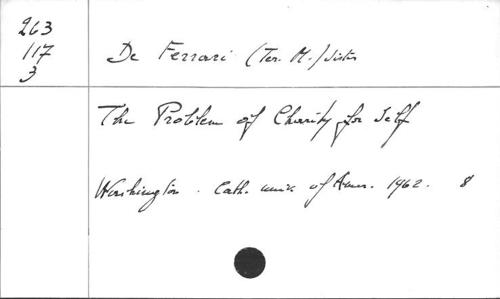 263
117
3
De Ferrari (Ter. M.) sister
The Problem of Charity for Self
Washington. Cath. univ of Amer. 1962. 8